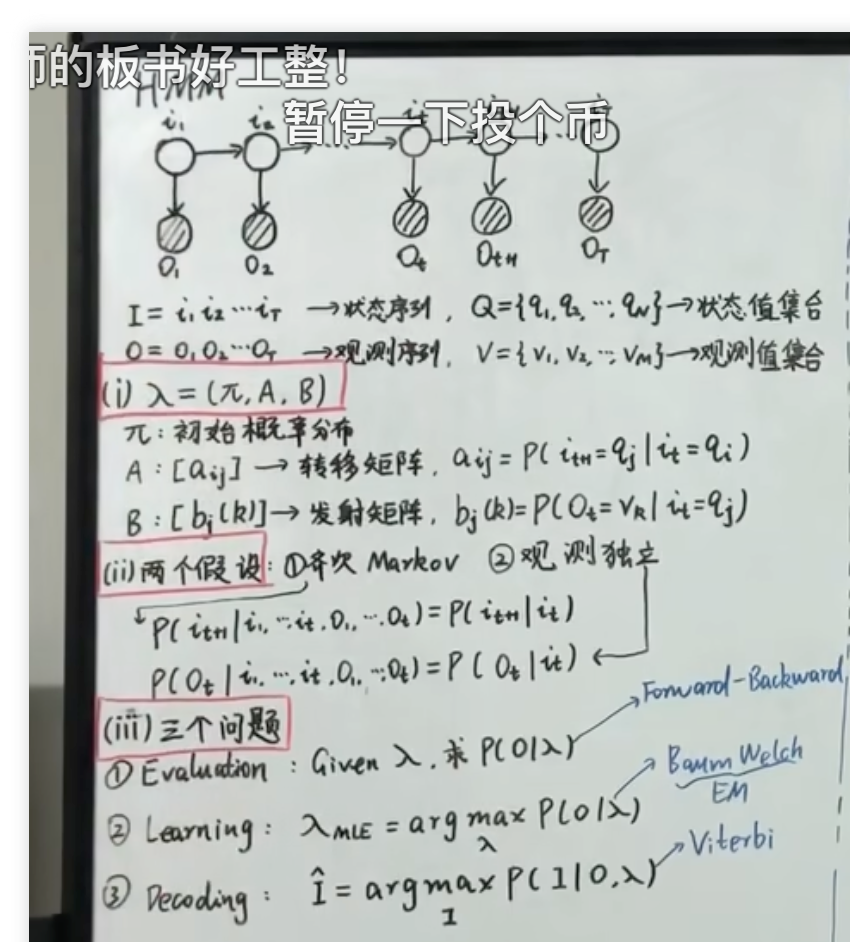 师的板书好工整！
HMM
暂停一下投个币
i₁ i₂ iₜ
O₁ O₂ Oₜ Oₜ₊₁ O_T
I = i₁ i₂ ⋯ i_T → 状态序列, Q = {q₁, q₂, ⋯, q_N} → 状态值集合
O = O₁ O₂ ⋯ O_T → 观测序列, V = {v₁, v₂, ⋯, v_M} → 观测值集合
(i) λ = (π, A, B)
π: 初始概率分布
A: [aᵢⱼ] → 转移矩阵, aᵢⱼ = P(iₜ₊₁ = qⱼ | iₜ = qᵢ)
B: [bⱼ(k)] → 发射矩阵, bⱼ(k) = P(Oₜ = vₖ | iₜ = qⱼ)
(ii) 两个假设: ① 齐次 Markov ② 观测独立
P(iₜ₊₁ | i₁, ⋯ iₜ, O₁, ⋯ Oₜ) = P(iₜ₊₁ | iₜ)
P(Oₜ | i₁, ⋯, iₜ, O₁, ⋯, Oₜ) = P(Oₜ | iₜ)
(iii) 三个问题
Forward-Backward
① Evaluation: Given λ, 求 P(O|λ)
Baum Welch
EM
② Learning: λ_MLE = arg max P(O|λ)
λ
Viterbi
③ Decoding: Î = arg max P(I|O, λ)
I